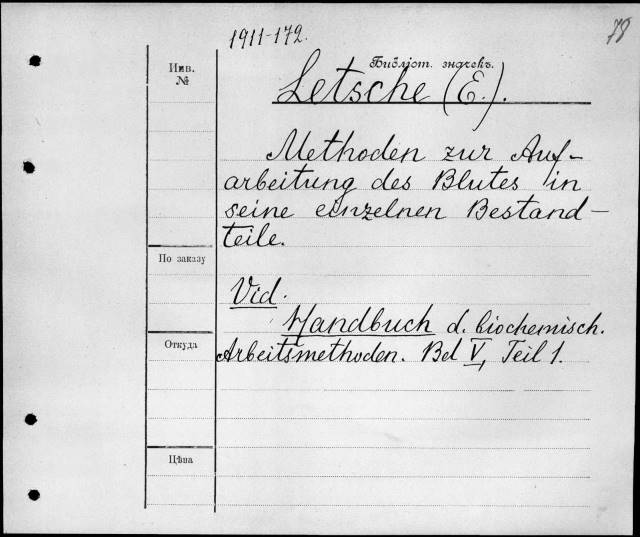 78
1911-172.
Библіот. значекъ.
Инв.
№
Letsche (E.).
Methoden zur Auf-
arbeitung des Blutes in
seine einzelnen Bestand-
teile.
По заказу
Vid.
Handbuch d. biochemisch.
Откуда
Arbeitsmethoden. Bd V, Teil 1.
Цѣна